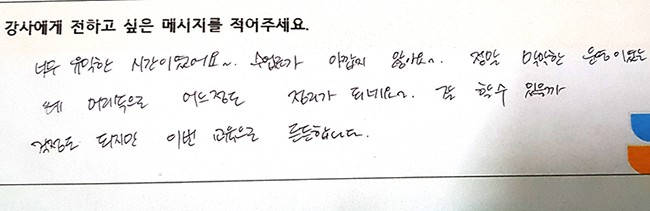 강사에게 전하고 싶은 메시지를 적어주세요.
너무 유익한 시간이었어요~. 수업료가 아깝지 않아요~. 정말 막막한 운영이었는
데 머릿속으로 어느정도 정리가 되네요~ 잘 할수 있을까
걱정도 되지만 이번 교육으로 든든합니다.